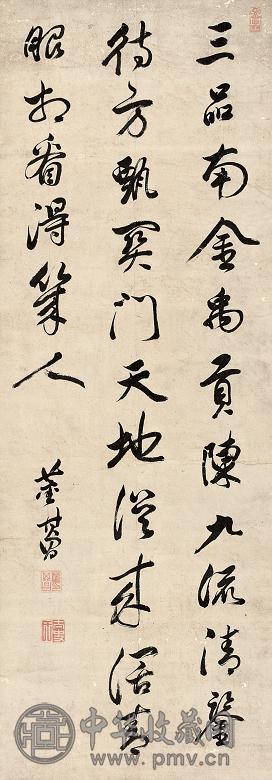 三品南金禹貢陳九流清鑒
待方甄吳門天地從來闊青
眼相看得幾人
董其昌
中华收藏网
www.pmv.cn